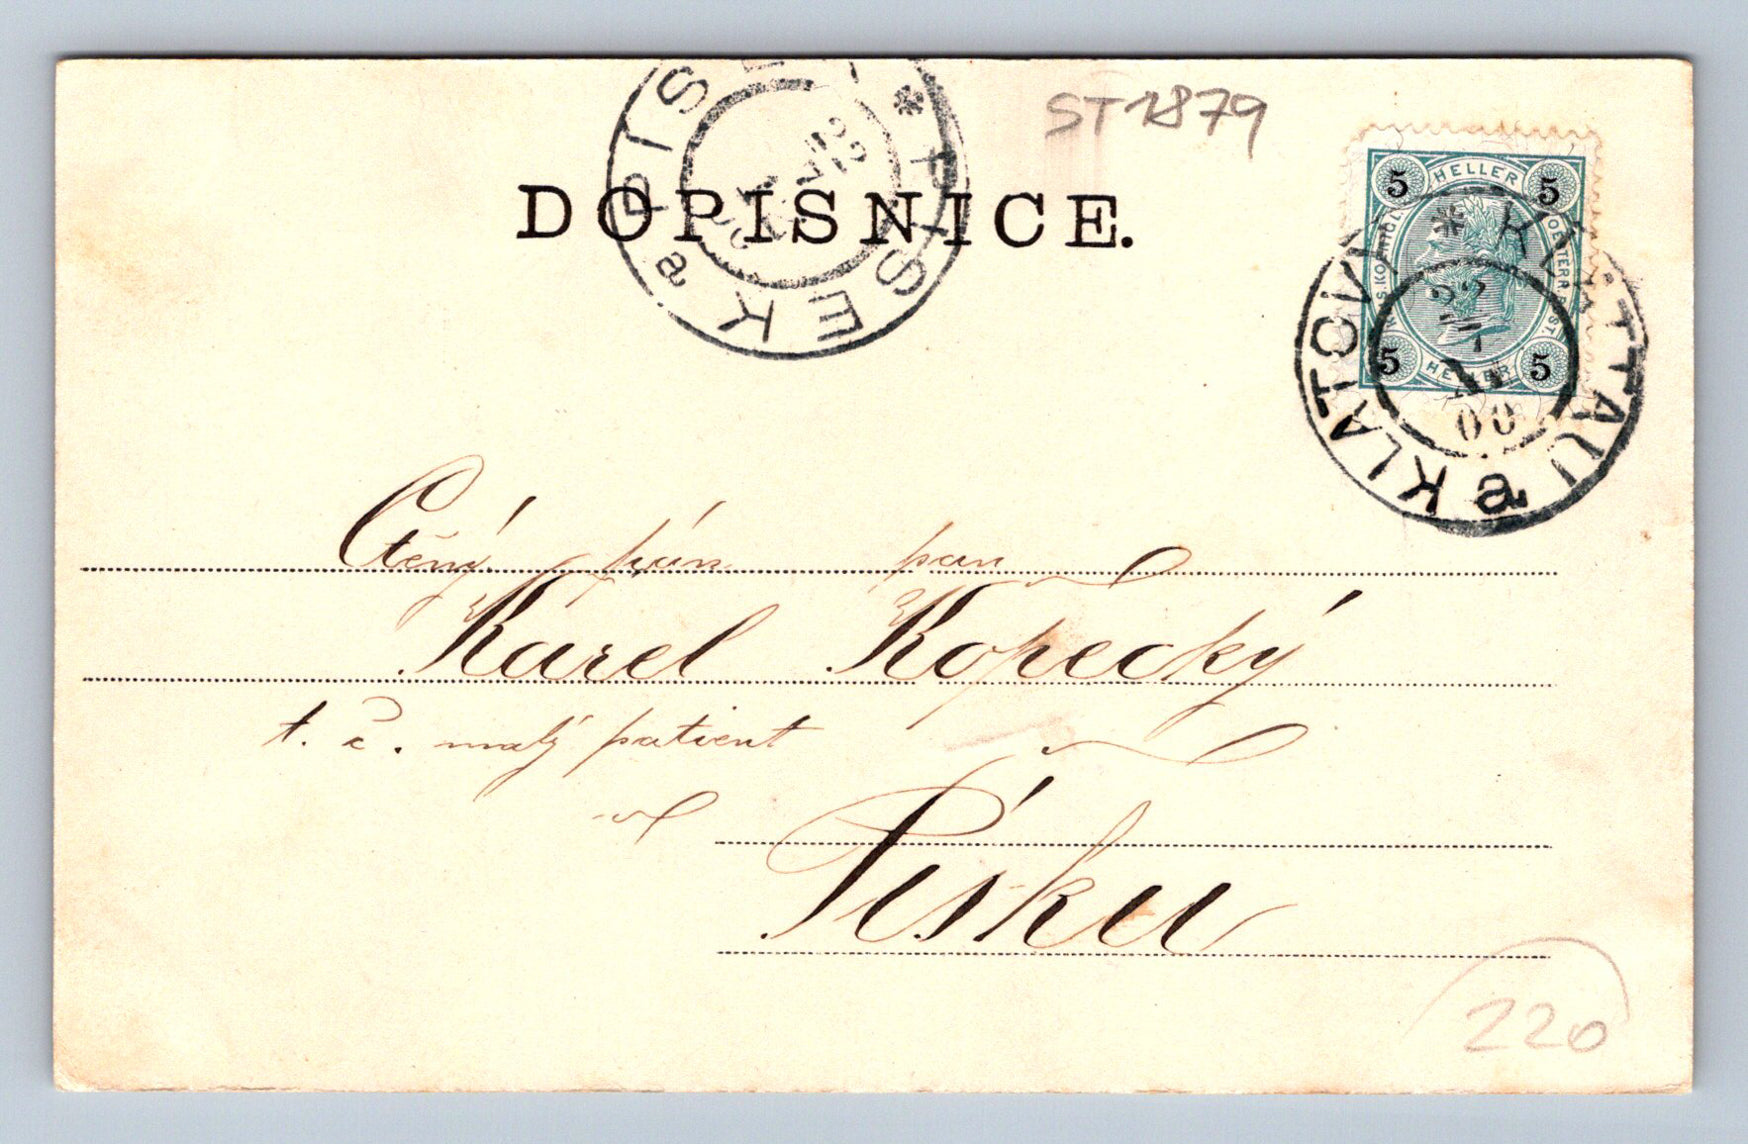 ST 1879
DOPISNICE.
PISEK * PISEK a
22
5 HELLER 5
5 HELLER 5
* KLATTAU a KLATOVY
22
00
Ctěný pán pan
Karel Kopecký
t. č. malý patient
Písku
220